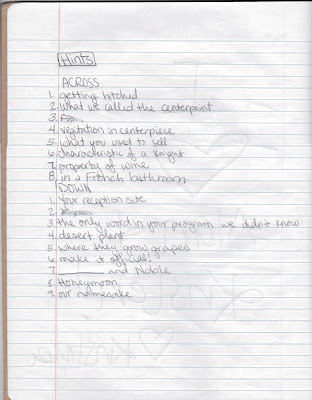 Hints
ACROSS
1. getting hitched
2. what we called the centerpoint
3.
4. vegitation in centerpiece
5. what you used to sell
6. characteristic of a knight
7. property of wine
8. in a French bathroom
DOWN
1. Your reception site
2.
3. the only word in your program we didn't know
4. desert plant
5. where they grow grapes
6. make it official!
7. ______ and Noble
8. Honeymoon
9. our namesake